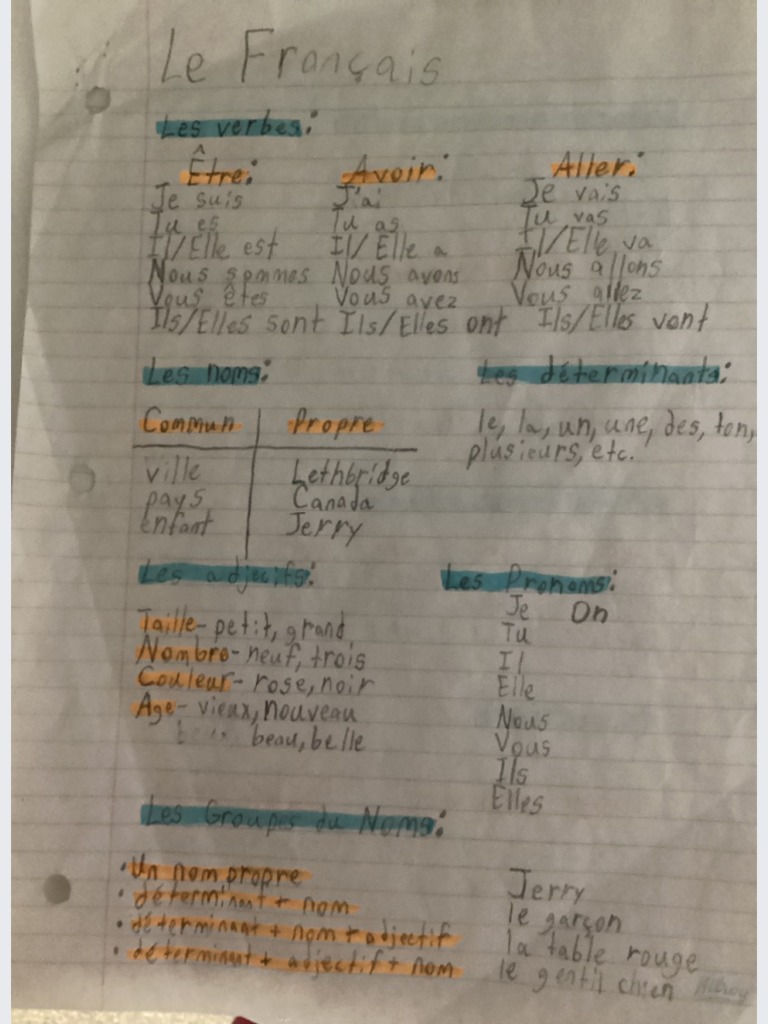 Le Français
Les verbes:
Être: Avoir: Aller:
Je suis J'ai Je vais
Tu es Tu as Tu vas
Il/Elle est Il/Elle a Il/Elle va
Nous sommes Nous avons Nous allons
Vous êtes Vous avez Vous allez
Ils/Elles sont Ils/Elles ont Ils/Elles vont
Les noms: Les déterminants:
Commun Propre le, la, un, une, des, ton,
plusieurs, etc.
ville Lethbridge
pays Canada
enfant Jerry
Les adjecifs: Les Pronoms:
Je On
Taille- petit, grand Tu
Nombre- neuf, trois Il
Couleur- rose, noir Elle
Age- vieux, nouveau Nous
beau, belle Vous
Ils
Elles
Les Groupes du Noms:
• Un nom propre Jerry
• déterminant + nom le garçon
• déterminant + nom + adjectif la table rouge
• déterminant + adjectif + nom le gentil chien
Hilroy